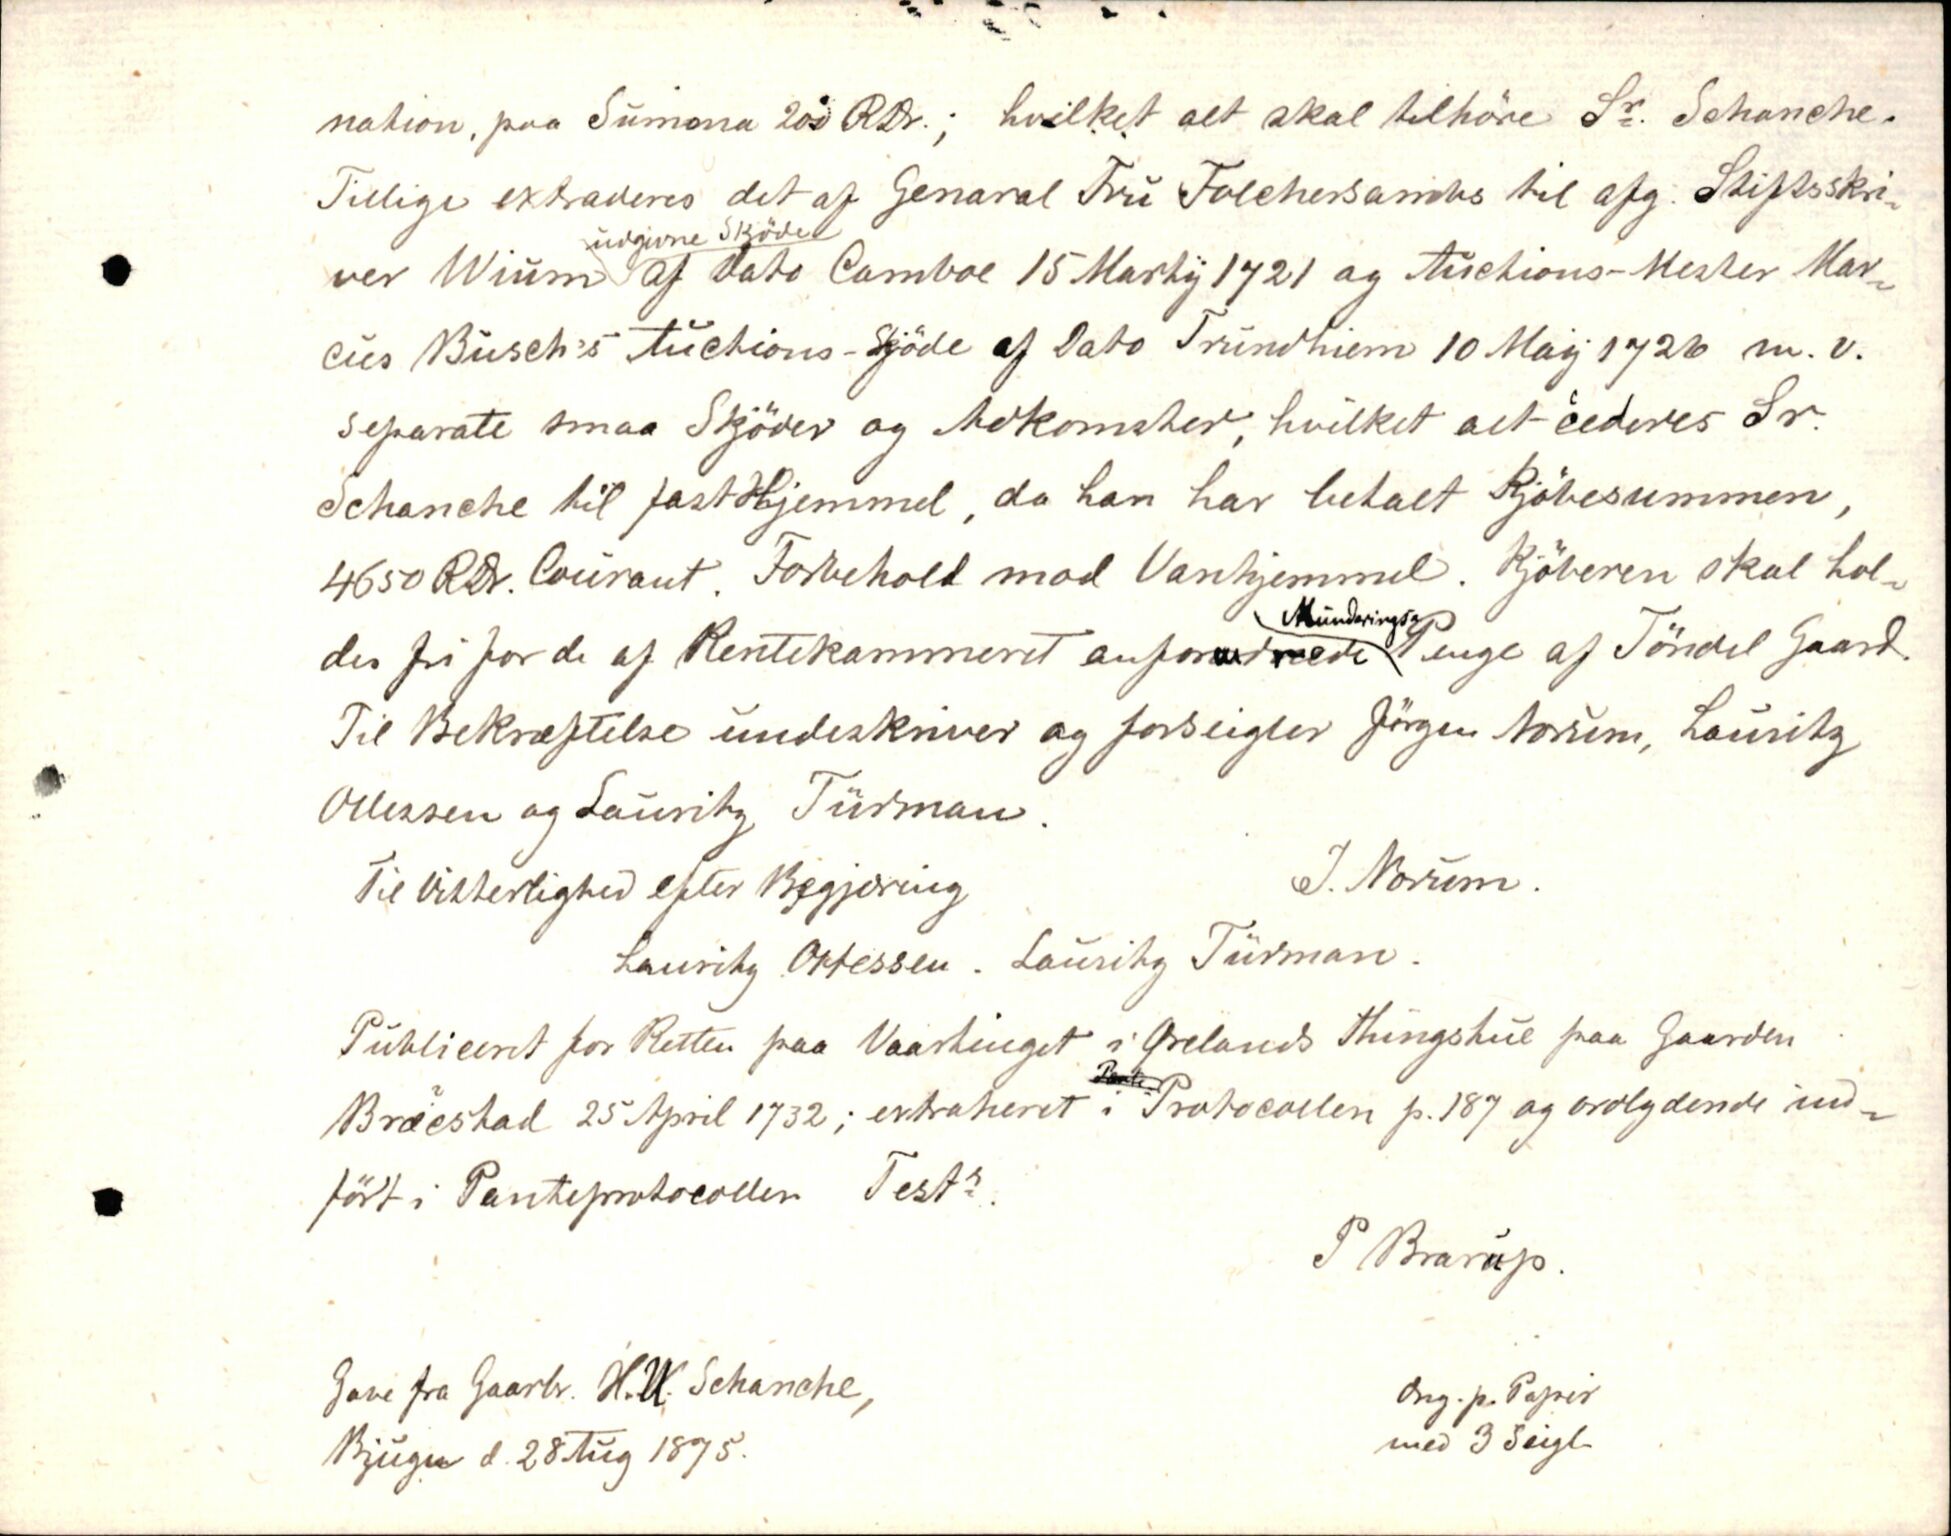 nation, paa Summa 200 RDr.; hvilket alt skal tilhöre Sr. Schanche.
Tillige extraderes det af General Fru Folchersambs til afg. Stiftsskri-
ver Wium udgivne Skjöde af Dato Camboe 15 Martij 1721 og Auctions-Mester Mar-
cus Busch's Auctions-Skjöde af Dato Trundhiem 10 Maij 1726 m. v.
separate smaa Skjöder og Adkomster, hvilket alt cederes Sr.
Schanche til fast Hjemmel, da han har betalt Kjöbesummen,
4650 RDr. Courant. Forbehold mod Vanhjemmel. Kjöberen skal hol-
des fri for de af Rentekammeret anfordrede Munderings Penge af Töndel Gaard.
Til Bekræftelse undeskriver og forseigler Jörgen Norum, Lauritz
Ottessen og Lauritz Türman.
Til Vitterlighed efter Begjæring J. Norum.
Lauritz Ottessen. Lauritz Türman.
Publiceret for Retten paa Vaarthinget i Ørelands Thingstue paa Gaarden
Bræcstad 25 April 1732; extraheret i Protocollen p. 187 og ordlydende ind-
fört i Panteprotocollen Testr.
P Brarup.
Gave fra Gaarbr. H.W. Schanche,
Bjugn d. 28 Aug 1875.
Orig. p. Papir
med 3 Seigl